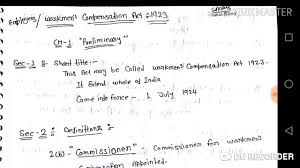 KINEMASTER
Employees/Workmen's Compensation Act - 1923
CH-1 "Preliminary"
Sec-1 : Short title :-
This Act may be Called Workmen's Compensation Act 1923.
It Extend whole of India
Come into force - 1 July 1924
Sec-2 : Definitions :-
2(b) - "Commissioner" - Commissioner for workmen
Compensation appointed.
DU RECORDER